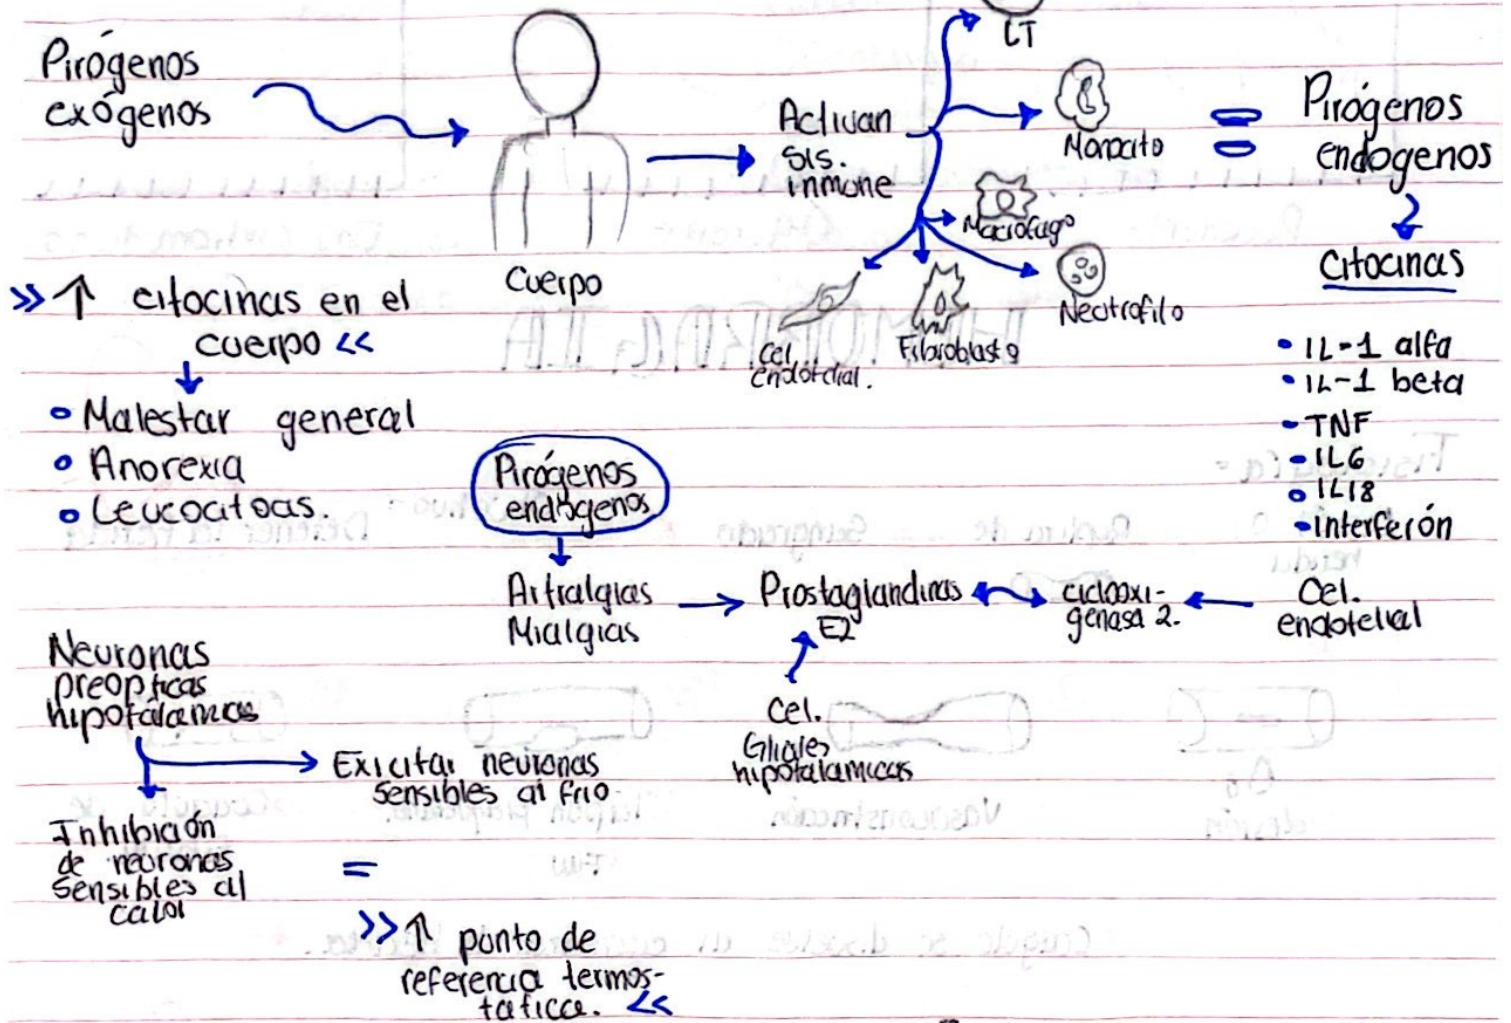 Pirógenos
exógenos
Cuerpo
Activan
sis.
inmune
LT
Monocito
Macrófago
Neutrofilo
Fibroblasto
Cel.
endotelial.
=
Pirógenos
endogenos
Citocinas
• IL-1 alfa
• IL-1 beta
• TNF
• IL6
• IL18
• Interferón
>> ↑ citocinas en el
cuerpo <<
• Malestar general
• Anorexia
• Leucocitoas.
Pirógenos
endógenos
Artralgias
Mialgias
Prostaglandinas
E2
ciclooxi-
genasa 2.
Cel.
endotelial
Cel.
Gliales
hipotalamicas
Neuronas
preopticas
hipotálamicas
Exicitar neuronas
sensibles al frio
Inhibición
de neuronas
sensibles al
calor
=
>> ↑ punto de
referencia termos-
tatica. <<